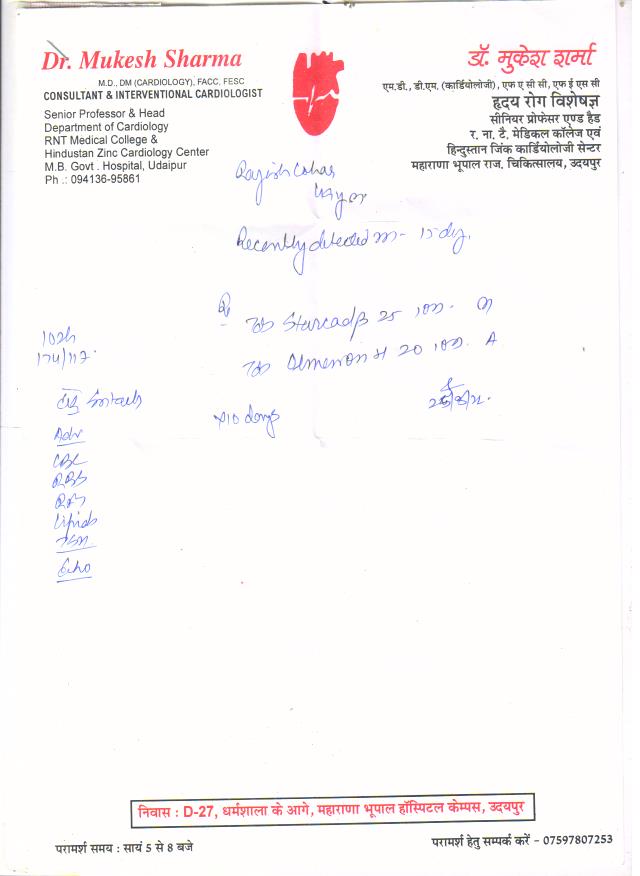 Dr. Mukesh Sharma
M.D., DM (CARDIOLOGY), FACC, FESC
CONSULTANT & INTERVENTIONAL CARDIOLOGIST
Senior Professor & Head
Department of Cardiology
RNT Medical College &
Hindustan Zinc Cardiology Center
M.B. Govt . Hospital, Udaipur
Ph .: 094136-95861
डॉ. मुकेश शर्मा
एम.डी., डी.एम. (कार्डियोलोजी), एफ ए सी सी, एफ ई एस सी
हृदय रोग विशेषज्ञ
सीनियर प्रोफेसर एण्ड हैड
र. ना. टै. मेडिकल कॉलेज एवं
हिन्दुस्तान जिंक कार्डियोलोजी सेन्टर
महाराणा भूपाल राज. चिकित्सालय, उदयपुर
Recently detected
25
20
174/117
x10 days
Adv
CBC
RBS
RFT
Lipids
TSH
Echo
निवास : D-27, धर्मशाला के आगे, महाराणा भूपाल हॉस्पिटल केम्पस, उदयपुर
परामर्श समय : सायं 5 से 8 बजे
परामर्श हेतु सम्पर्क करें - 07597807253